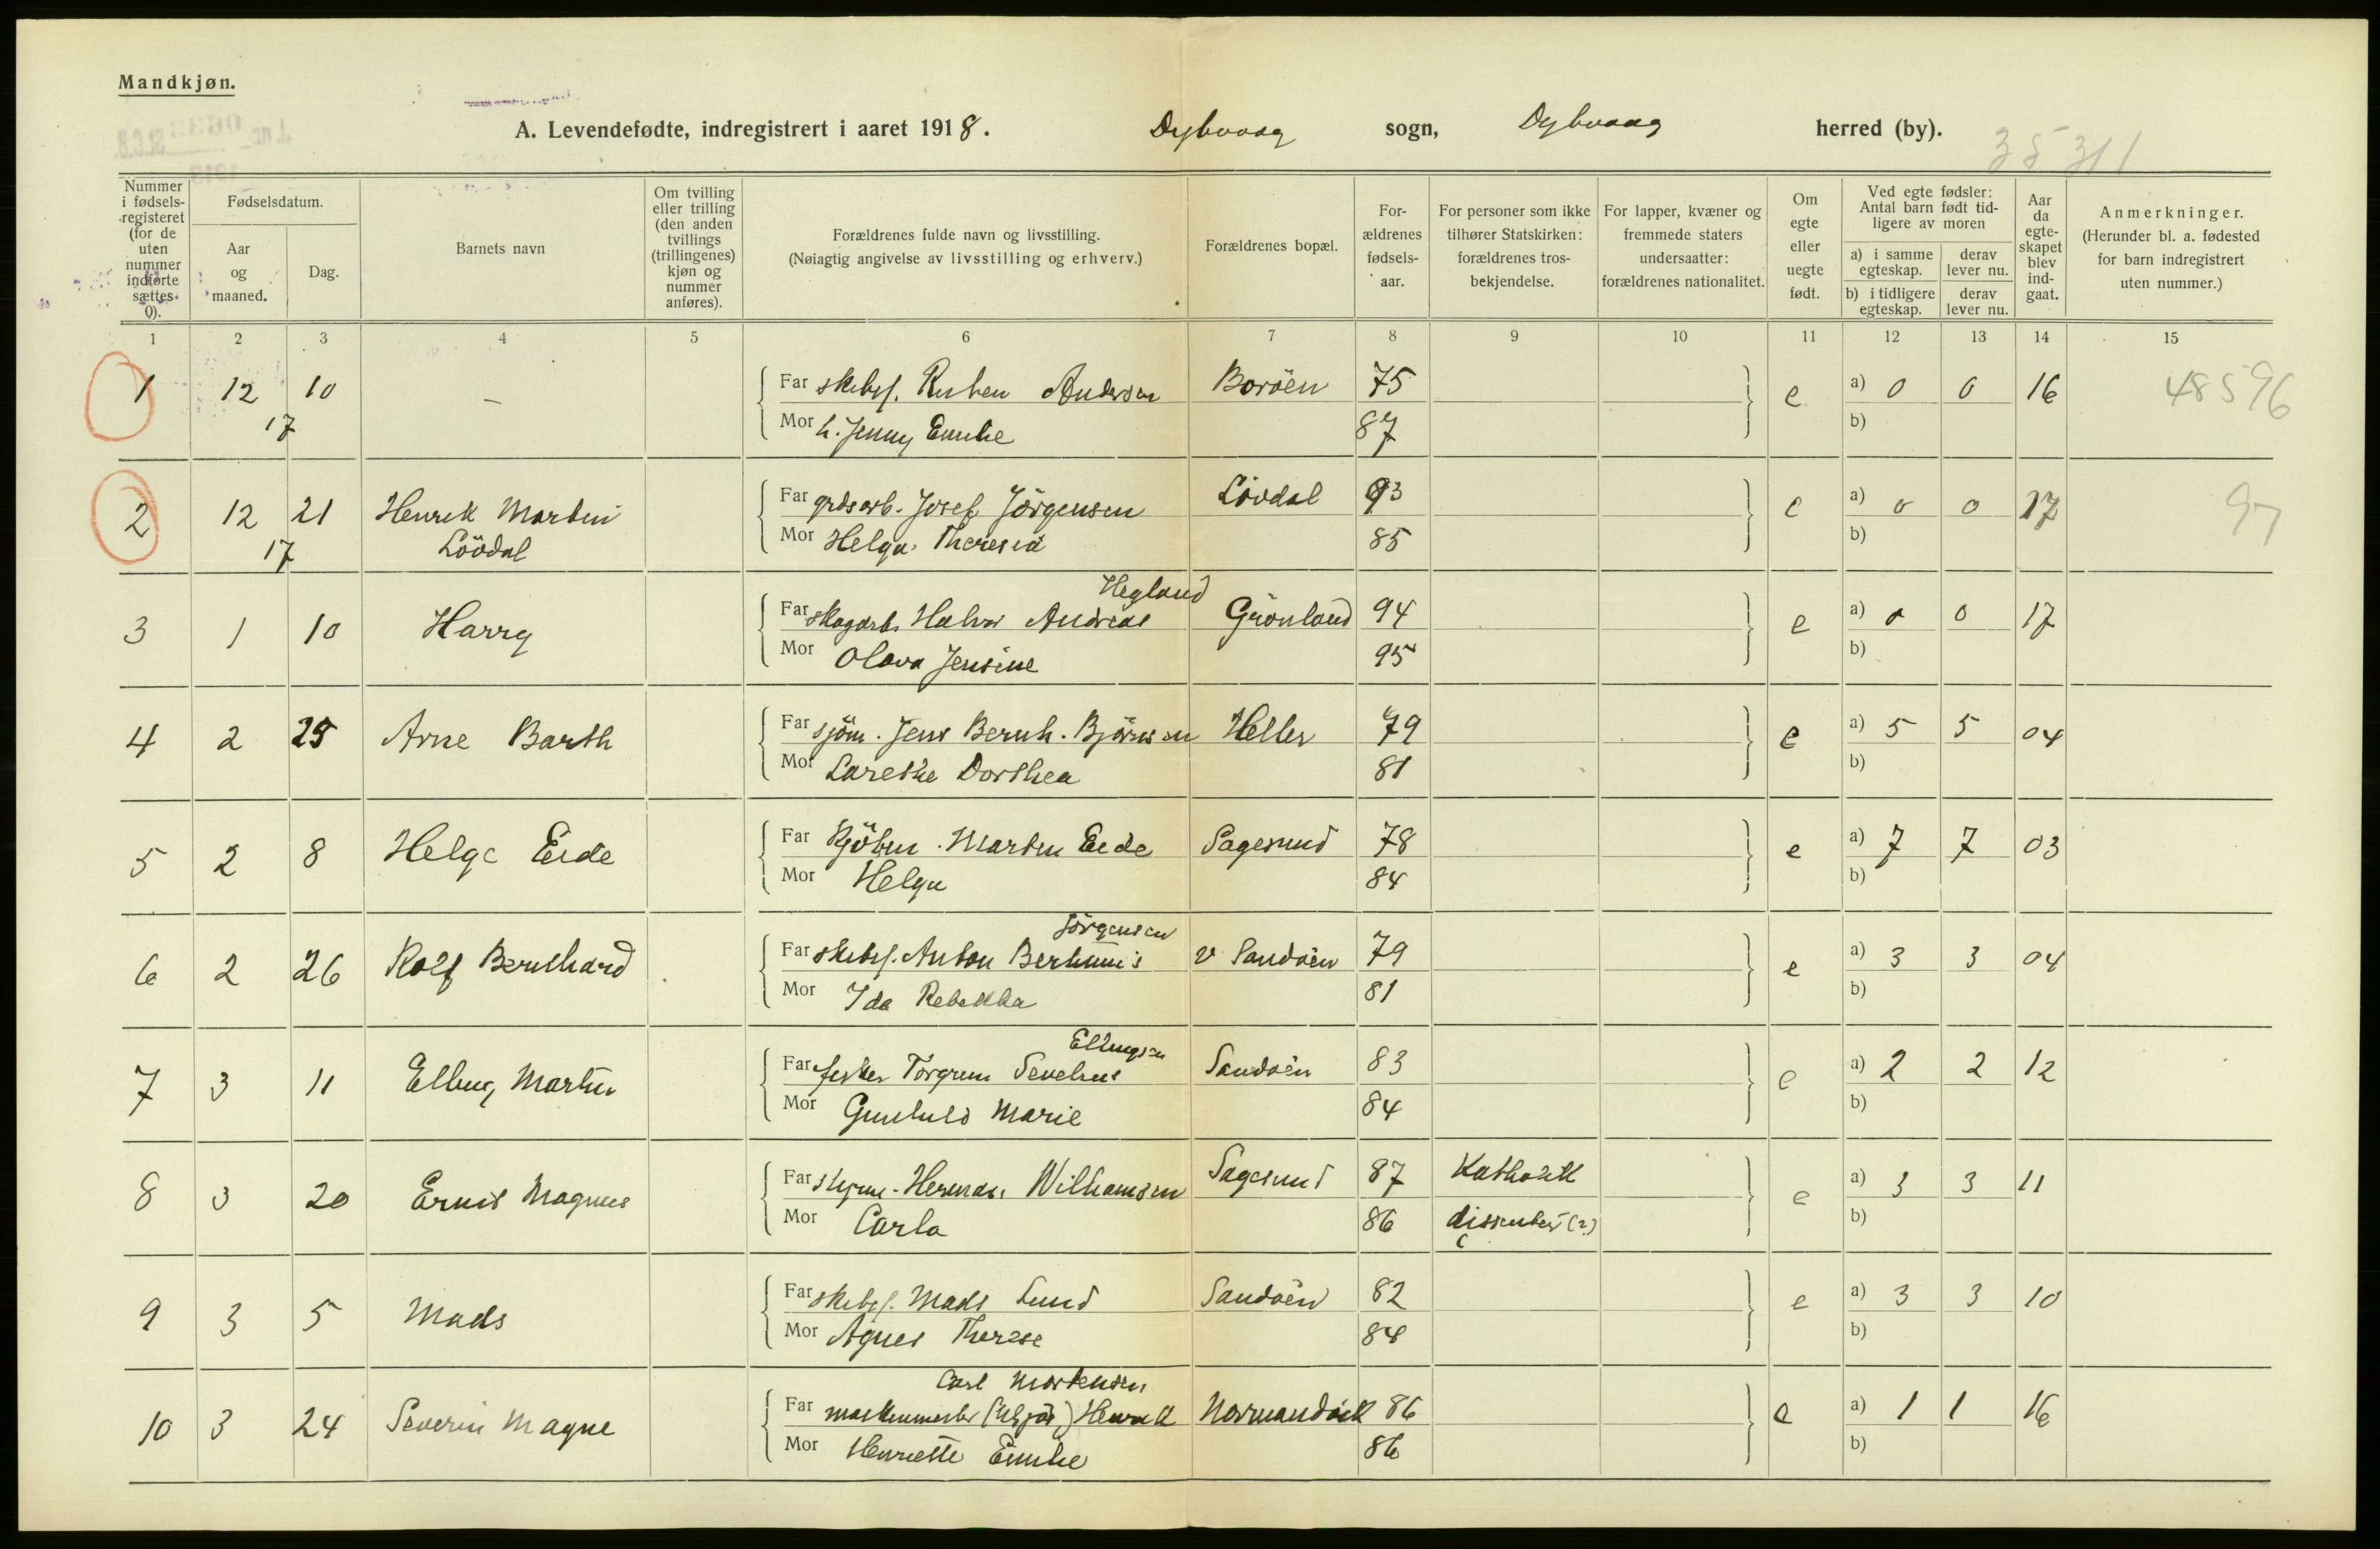 Mandkjøn.
A. Levendefødte, indregistrert i aaret 1918. Dybvaag sogn, Dybvaag herred (by).
35311
Nummer i fødsels-registeret (for de uten nummer indførte sættes 0).
Fødselsdatum.
Aar og maaned.
Dag.
Barnets navn
Om tvilling eller trilling (den anden tvillings (trillingenes) kjøn og nummer anføres).
Forældrenes fulde navn og livsstilling.
(Nøiagtig angivelse av livsstilling og erhverv.)
Forældrenes bopæl.
For-ældrenes fødsels-aar.
For personer som ikke tilhører Statskirken: forældrenes tros-bekjendelse.
For lapper, kvæner og fremmede staters undersaatter: forældrenes nationalitet.
Om egte eller uegte født.
Ved egte fødsler: Antal barn født tid-ligere av moren
a) i samme egteskap. derav lever nu.
b) i tidligere egteskap. derav lever nu.
Aar da egte-skapet blev ind-gaat.
Anmerkninger.
(Herunder bl. a. fødested for barn indregistrert uten nummer.)
1 2 3 4 5 6 7 8 9 10 11 12 13 14 15
1 12 10 — Far skibsf. Ruben Andersen Boröen 75 e a) 0 0 16 48596
17 Mor h. Jenny Emilie 87 b)
2 12 21 Henrik Martin Far grdsarb. Josef Jörgensen Lövdal 93 e a) 0 0 17 97
17 Lövdal Mor Helga Theresia 85 b)
Hegland
3 1 10 Harry Far skogarb. Halvor Andreas Grönland 94 e a) 0 0 17
Mor Olava Jensine 95 b)
4 2 25 Arne Barth Far sjöm. Jens Bernh. Björnsen Heller 79 e a) 5 5 04
Mor Dorthea 81 b)
5 2 8 Helge Eide Far Kjöbm. Martin Eide Sagesund 78 e a) 7 7 03
Mor Helga 84 b)
Jörgensen
6 2 26 Rolf Bernhard Far skibsf. Anton v Sandöen 79 e a) 3 3 04
Mor Ida Rebekka 81 b)
Ellingsen
7 3 11 Elling Martin Far fisker Torgrim Sandöen 83 e a) 2 2 12
Mor Gunhild Marie 84 b)
8 3 20 Ernst Magnus Far Herman Williamsen Sagesund 87 Katholik e a) 3 3 11
Mor Carla 86 dissenter (?) b)
9 3 5 Mads Far skibsf. Mads Lund Sandöen 82 e a) 3 3 10
Mor Agnes Therese 84 b)
Carl Mortensen
10 3 24 Severin Magne Far maskinmester Henrik Normandvik 86 e a) 1 1 16
Mor Henriette Emilie 86 b)